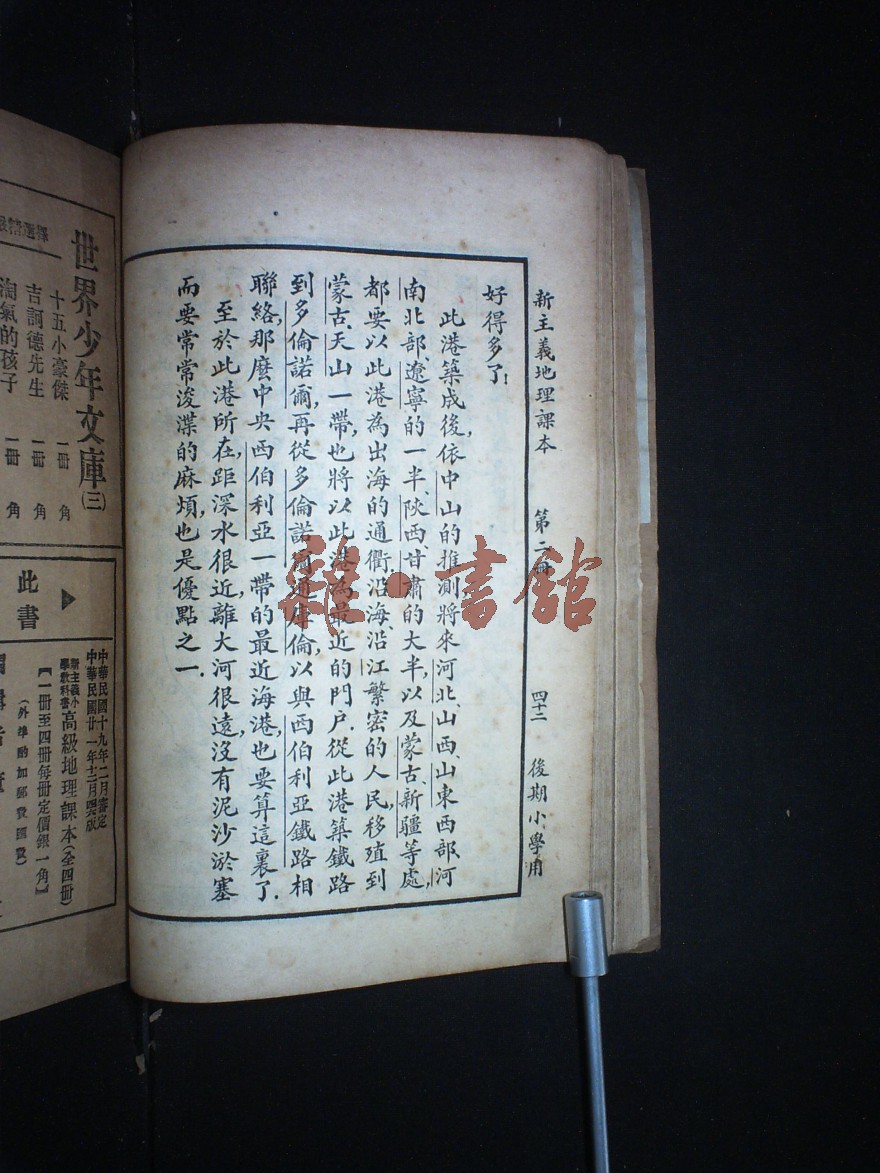 新主義地理課本 第二冊 四十二 後期小學用
好得多了!
此港築成後,依中山的推測將來河北、山西、山東西部、河
南北部、遼寧的一半、陝西、甘肅的大半,以及蒙古、新疆等處,
都要以此港為出海的通衢.沿海、沿江繁密的人民,移殖到
蒙古、天山一帶,也將以此港為最近的門戶.從此港築鐵路
到多倫諾爾,再從多倫諾爾通庫倫,以與西伯利亞鐵路相
聯絡,那麼中央西伯利亞一帶的最近海港,也要算這裏了.
至於此港所在,距深水很近,離大河很遠,沒有泥沙淤塞
而要常常浚渫的麻煩,也是優點之一.
雜·書館
譯選
世界少年文庫(三)
十五小豪傑 一冊 角
吉訶德先生 一冊 角
淘氣的孩子 一冊 角
此書
中華民國十九年二月審定
中華民國廿一年十二月四版
新主義小學教科書 高級地理課本(全四冊)
【一冊至四冊每冊定價銀一角】
(外埠酌加郵費匯費)